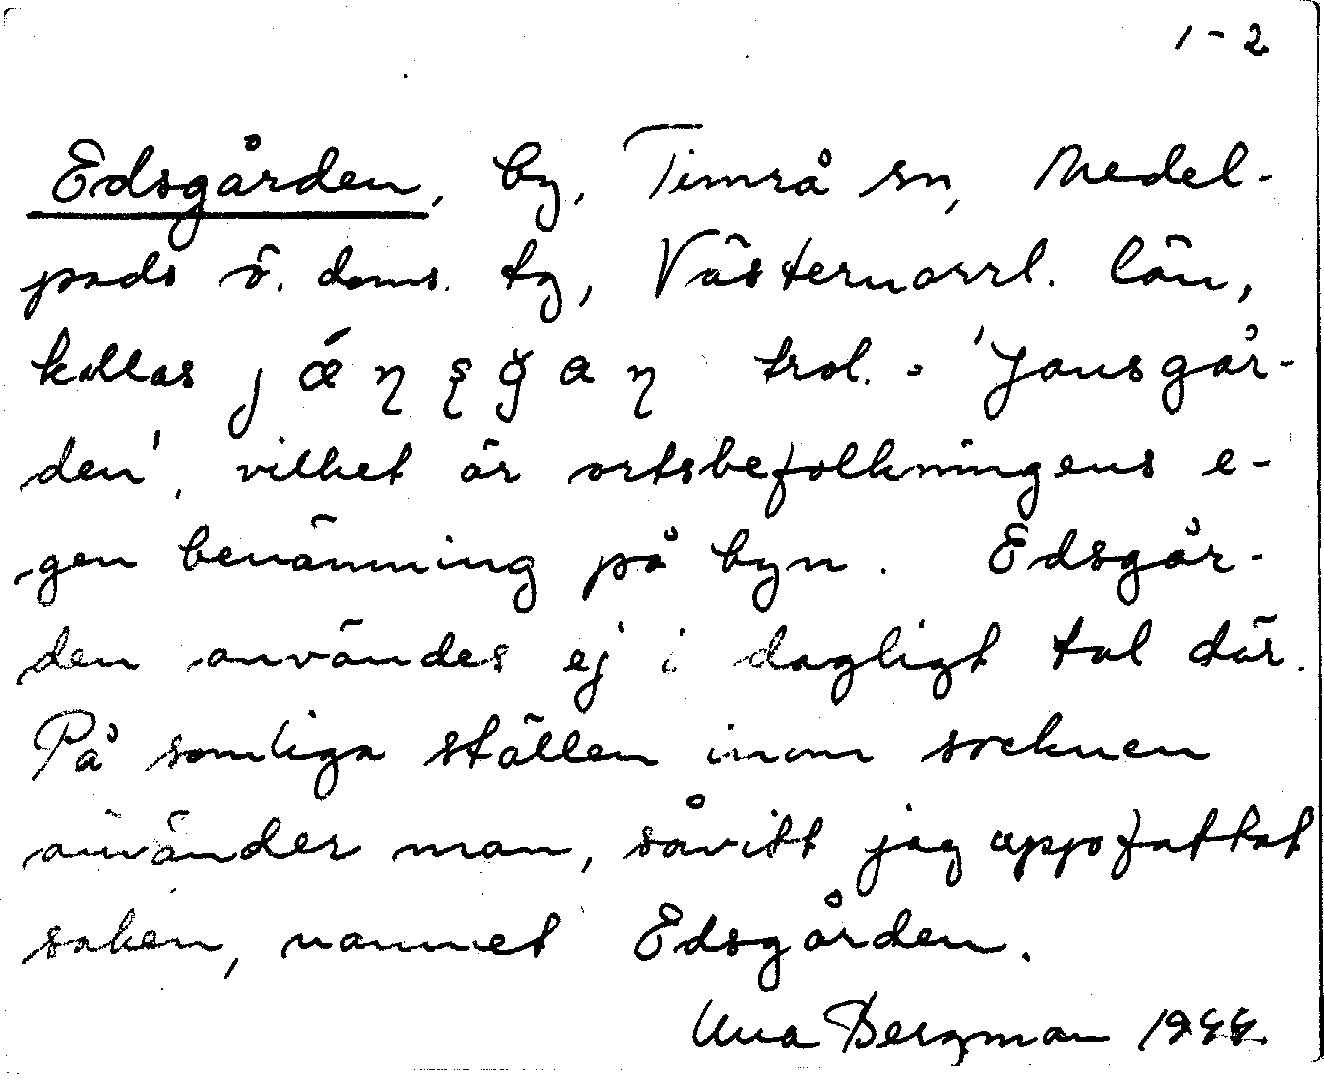 1-2
Edsgården, by, Timrå sn, Medel-
pads ö. doms. tg, Västernorrl. län,
kallas trol. = 'Jansgår-
den', vilket är ortsbefolkningens e-
gen benämning på byn. Edsgår-
den användes ej i dagligt tal där.
På somliga ställen inom socknen
använder man, såvitt jag uppfattat
saken, namnet Edsgården.
Bergman 1944.